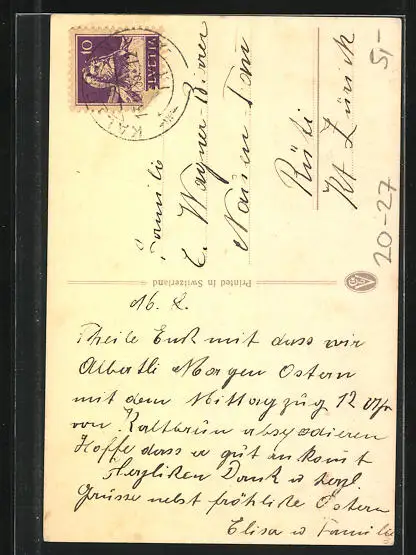 10
HELVETIA
KALT
Familie
C. Wagner-Bixer
Rüti
Kt Zürich
5/-
20-27
Printed in Switzerland
16. 2.
Theile Euch mit dass wir
Albertli Morgen Ostern
mit dem Mittagzug 12 Uhr
von Kaltbrun abspedieren
Hoffe dass er gut ankomt
Herzliken Dank u herzl.
Grüsse nebst fröhliche Ostern
Elisa u Familie